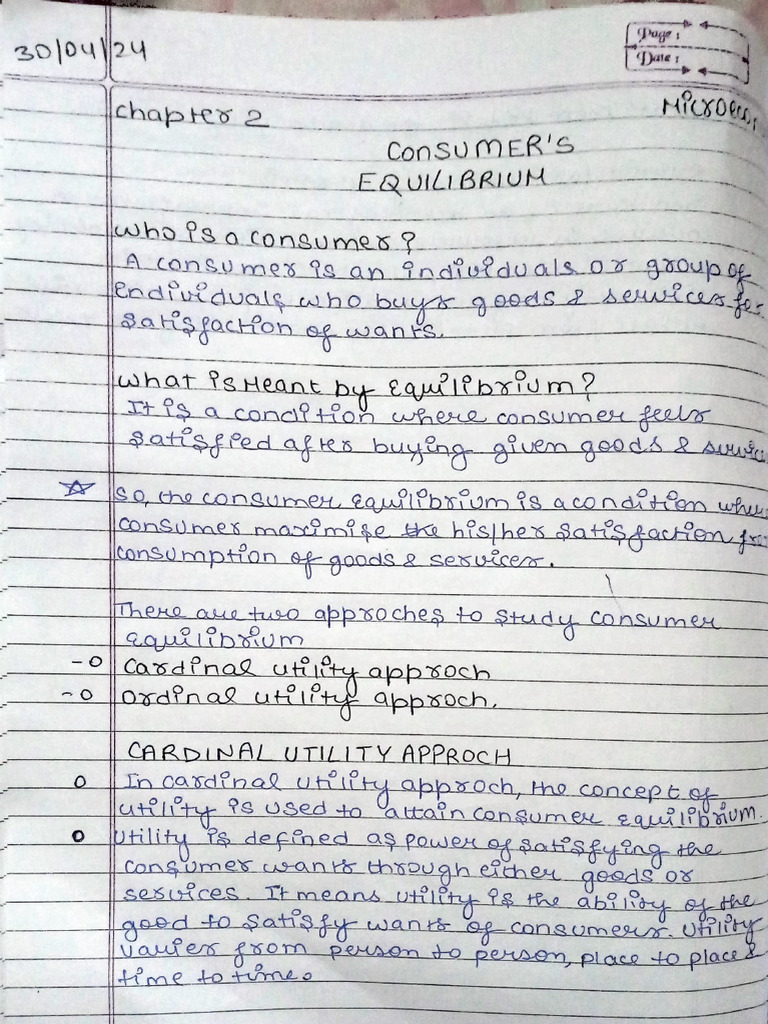 30/04/24
Page :
Date :
Chapter 2
MICROECO
CONSUMER'S
EQUILIBRIUM
Who is a consumer?
A consumer is an individuals or group of
individuals who buys goods & services for
satisfaction of wants.
What is Meant by Equilibrium?
It is a condition where consumer feels
satisfied after buying given goods & servic
So, the consumer equilibrium is a condition where
consumer maximise the his/her satisfaction from
consumption of goods & services.
There are two approches to study consumer
equilibrium
-o Cardinal utility approch
-o Ordinal utility approch.
CARDINAL UTILITY APPROCH
o In cardinal utility approch, the concept of
utility is used to attain consumer equilibrium.
o Utility is defined as power of satisfying the
consumer wants through either goods or
services. It means utility is the ability of the
good to satisfy wants of consumers. Utility
varies from person to person, place to place &
time to time.